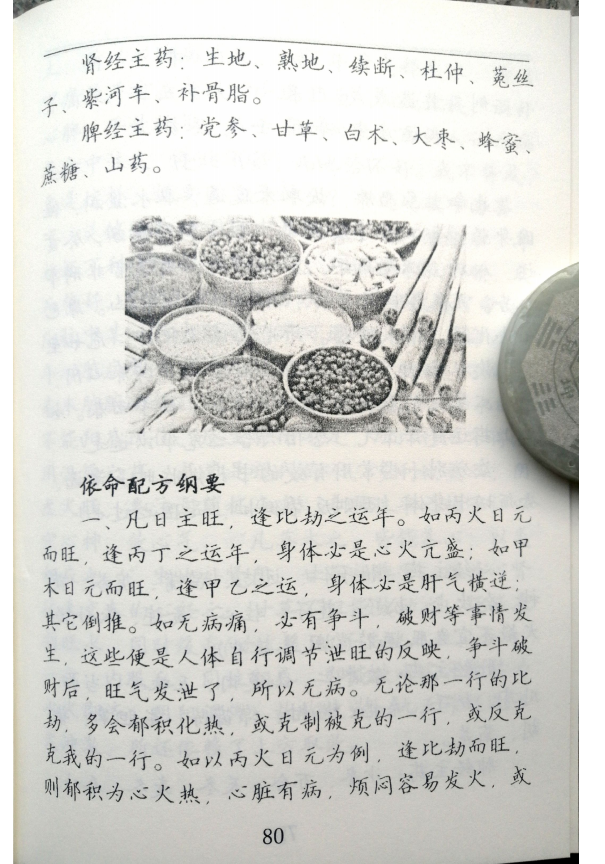 肾经主药：生地、熟地、续断、杜仲、菟丝
子、紫河车、补骨脂。
脾经主药：党参、甘草、白术、大枣、蜂蜜、
蔗糖、山药。
依命配方纲要
一、凡日主旺，逢比劫之运年。如丙火日元
而旺，逢丙丁之运年，身体必是心火亢盛；如甲
木日元而旺，逢甲乙之运，身体必是肝气横逆，
其它倒推。如无病痛，必有争斗，破财等事情发
生，这些便是人体自行调节泄旺的反映，争斗破
财后，旺气发泄了，所以无病。无论那一行的比
劫，多会郁积化热，或克制被克的一行，或反克
克我的一行。如以丙火日元为例，逢比劫而旺，
则郁积为心火热，心脏有病，烦闷容易发火，或
80